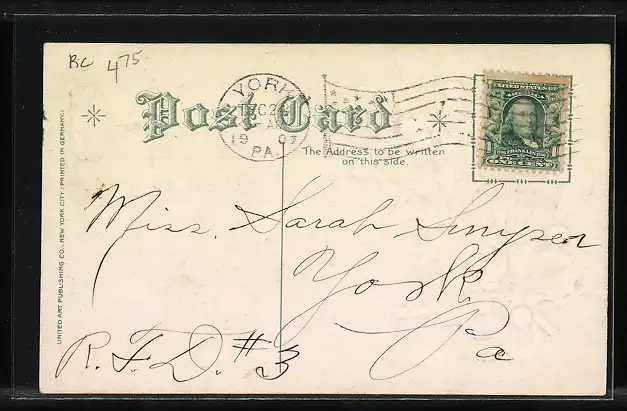 BC 475
Post Card
YORK
1907
PA.
The Address to be written
on this side.
UNITED STATES OF
AMERICA
FRANKLIN
ONE CENT
UNITED ART PUBLISHING CO., NEW YORK CITY (PRINTED IN GERMANY.)
Miss. Sarah
York
Pa
R.F.D. #3